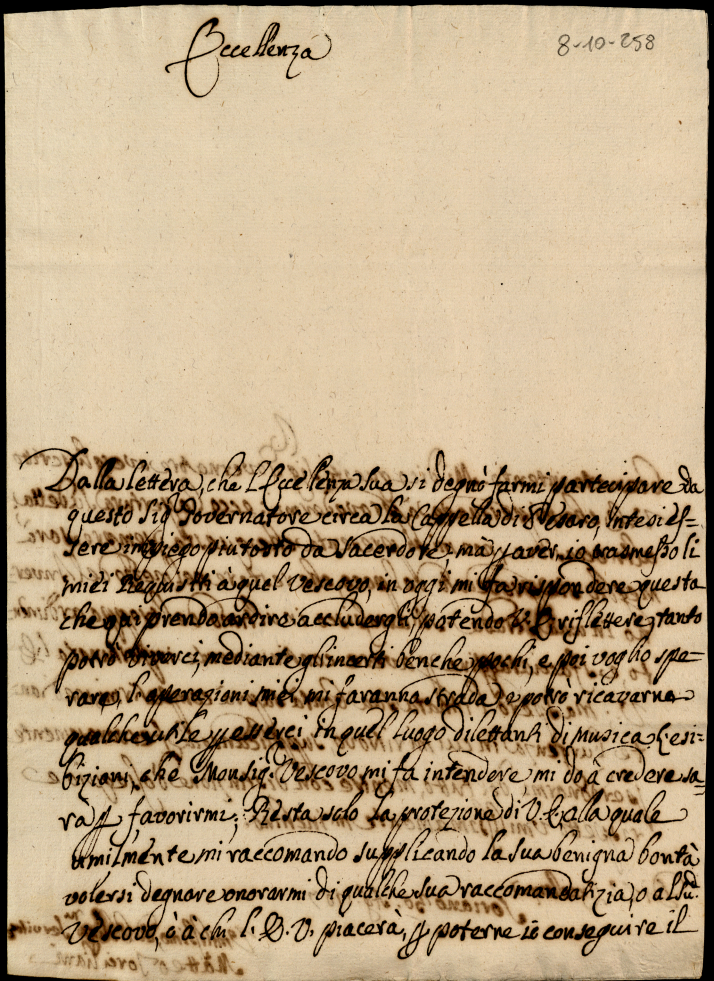 Eccellenza
8-10-258
Dalla lettera, che l'Eccellenza sua si degnò farmi partecipare da
questo Sig. Governatore circa la Cappella di Pesaro, intesi es-
sere impiego piutosto da Sacerdote, mà p aver io trasmesso li
miei Requisiti à quel Vescovo, in oggi mi fa rispondere questa
che qui prendo ardire accludergli, potendo V. E. riflettere, tanto
potrò viverci, mediante gl'incerti benche pochi, e poi voglio spe-
rare, l'operazioni miei mi faranna strada, e potrò ricavarne
qualche utile p esserci in quel luogo dilettanti di musica l'esi-
bizioni, che Monsig. Vescovo mi fa intendere mi do à credere sa-
rà p favorirmi; Resta solo la protezione di V. E. alla quale
umilmente mi raccomando supplicando la sua benigna bontà
volersi degnare onorarmi di qualche sua raccomandatizia, o al sud.
Vescovo, ò à chi l'E. V. piacerà, p poterne io conseguire il